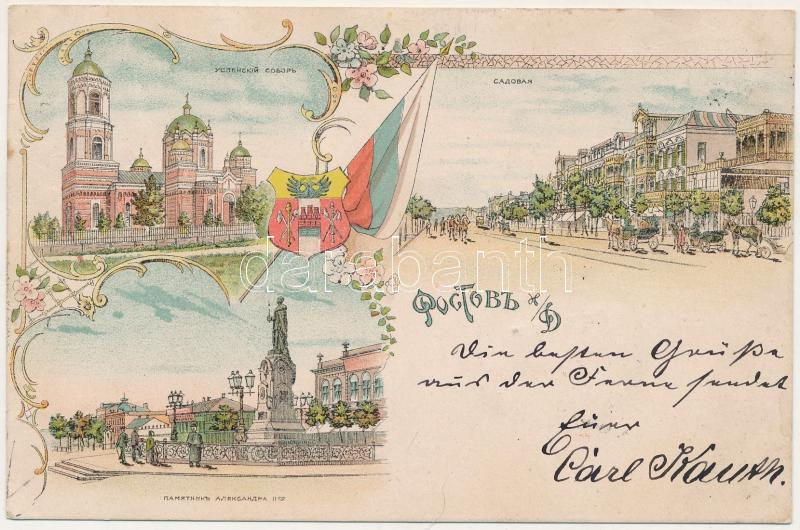 УСПЕНСКІЙ СОБОРЪ
САДОВАЯ
РОСТОВЪ н/Д
Die besten Grüße
aus der Ferne sendet
Euer
Carl Kauth.
ПАМЯТНИКЪ АЛЕКСАНДРА IIго
darabanth